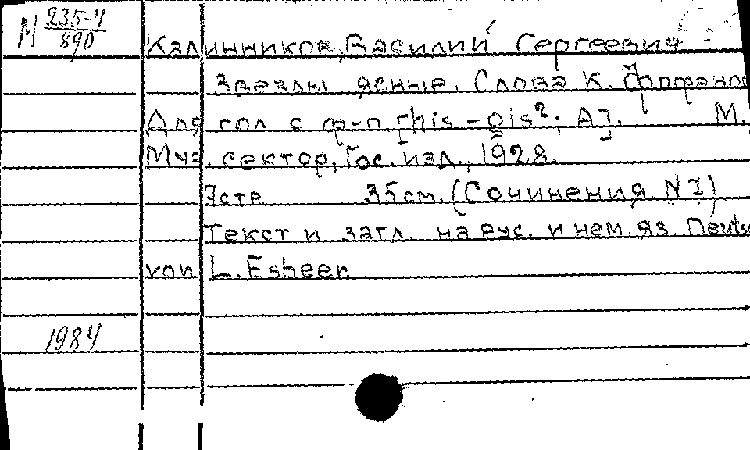 М 235-4
890
Калинников, Василий Сергеевич
Звезды ясные. Слова К. Фофанов
Для гол с ф-п. [his-gis²; A].  М.,
Муз. сектор, Гос. изд., 1928.
7стр  35см. (Сочинения N I)
Текст и загл. на рус. и нем. яз. Deuts
von L. Esbeer
1984